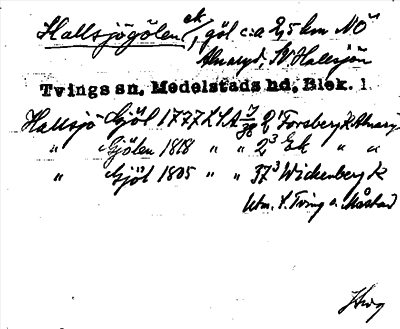 Hallsjögölen ek, göl c:a 2,5 km NÖ
Alnaryd, SV Hallsjön
Tvings sn, Medelstads hd, Blek. 1
Hallsjö Gjöl 1777 LSA Forsberg K Alnaryd
" Gjölen 1818 " " 2³ Ek " "
" Gjöl 1805 " " 37³ Wickenberg K
Utm. t. Tving o. Måstad